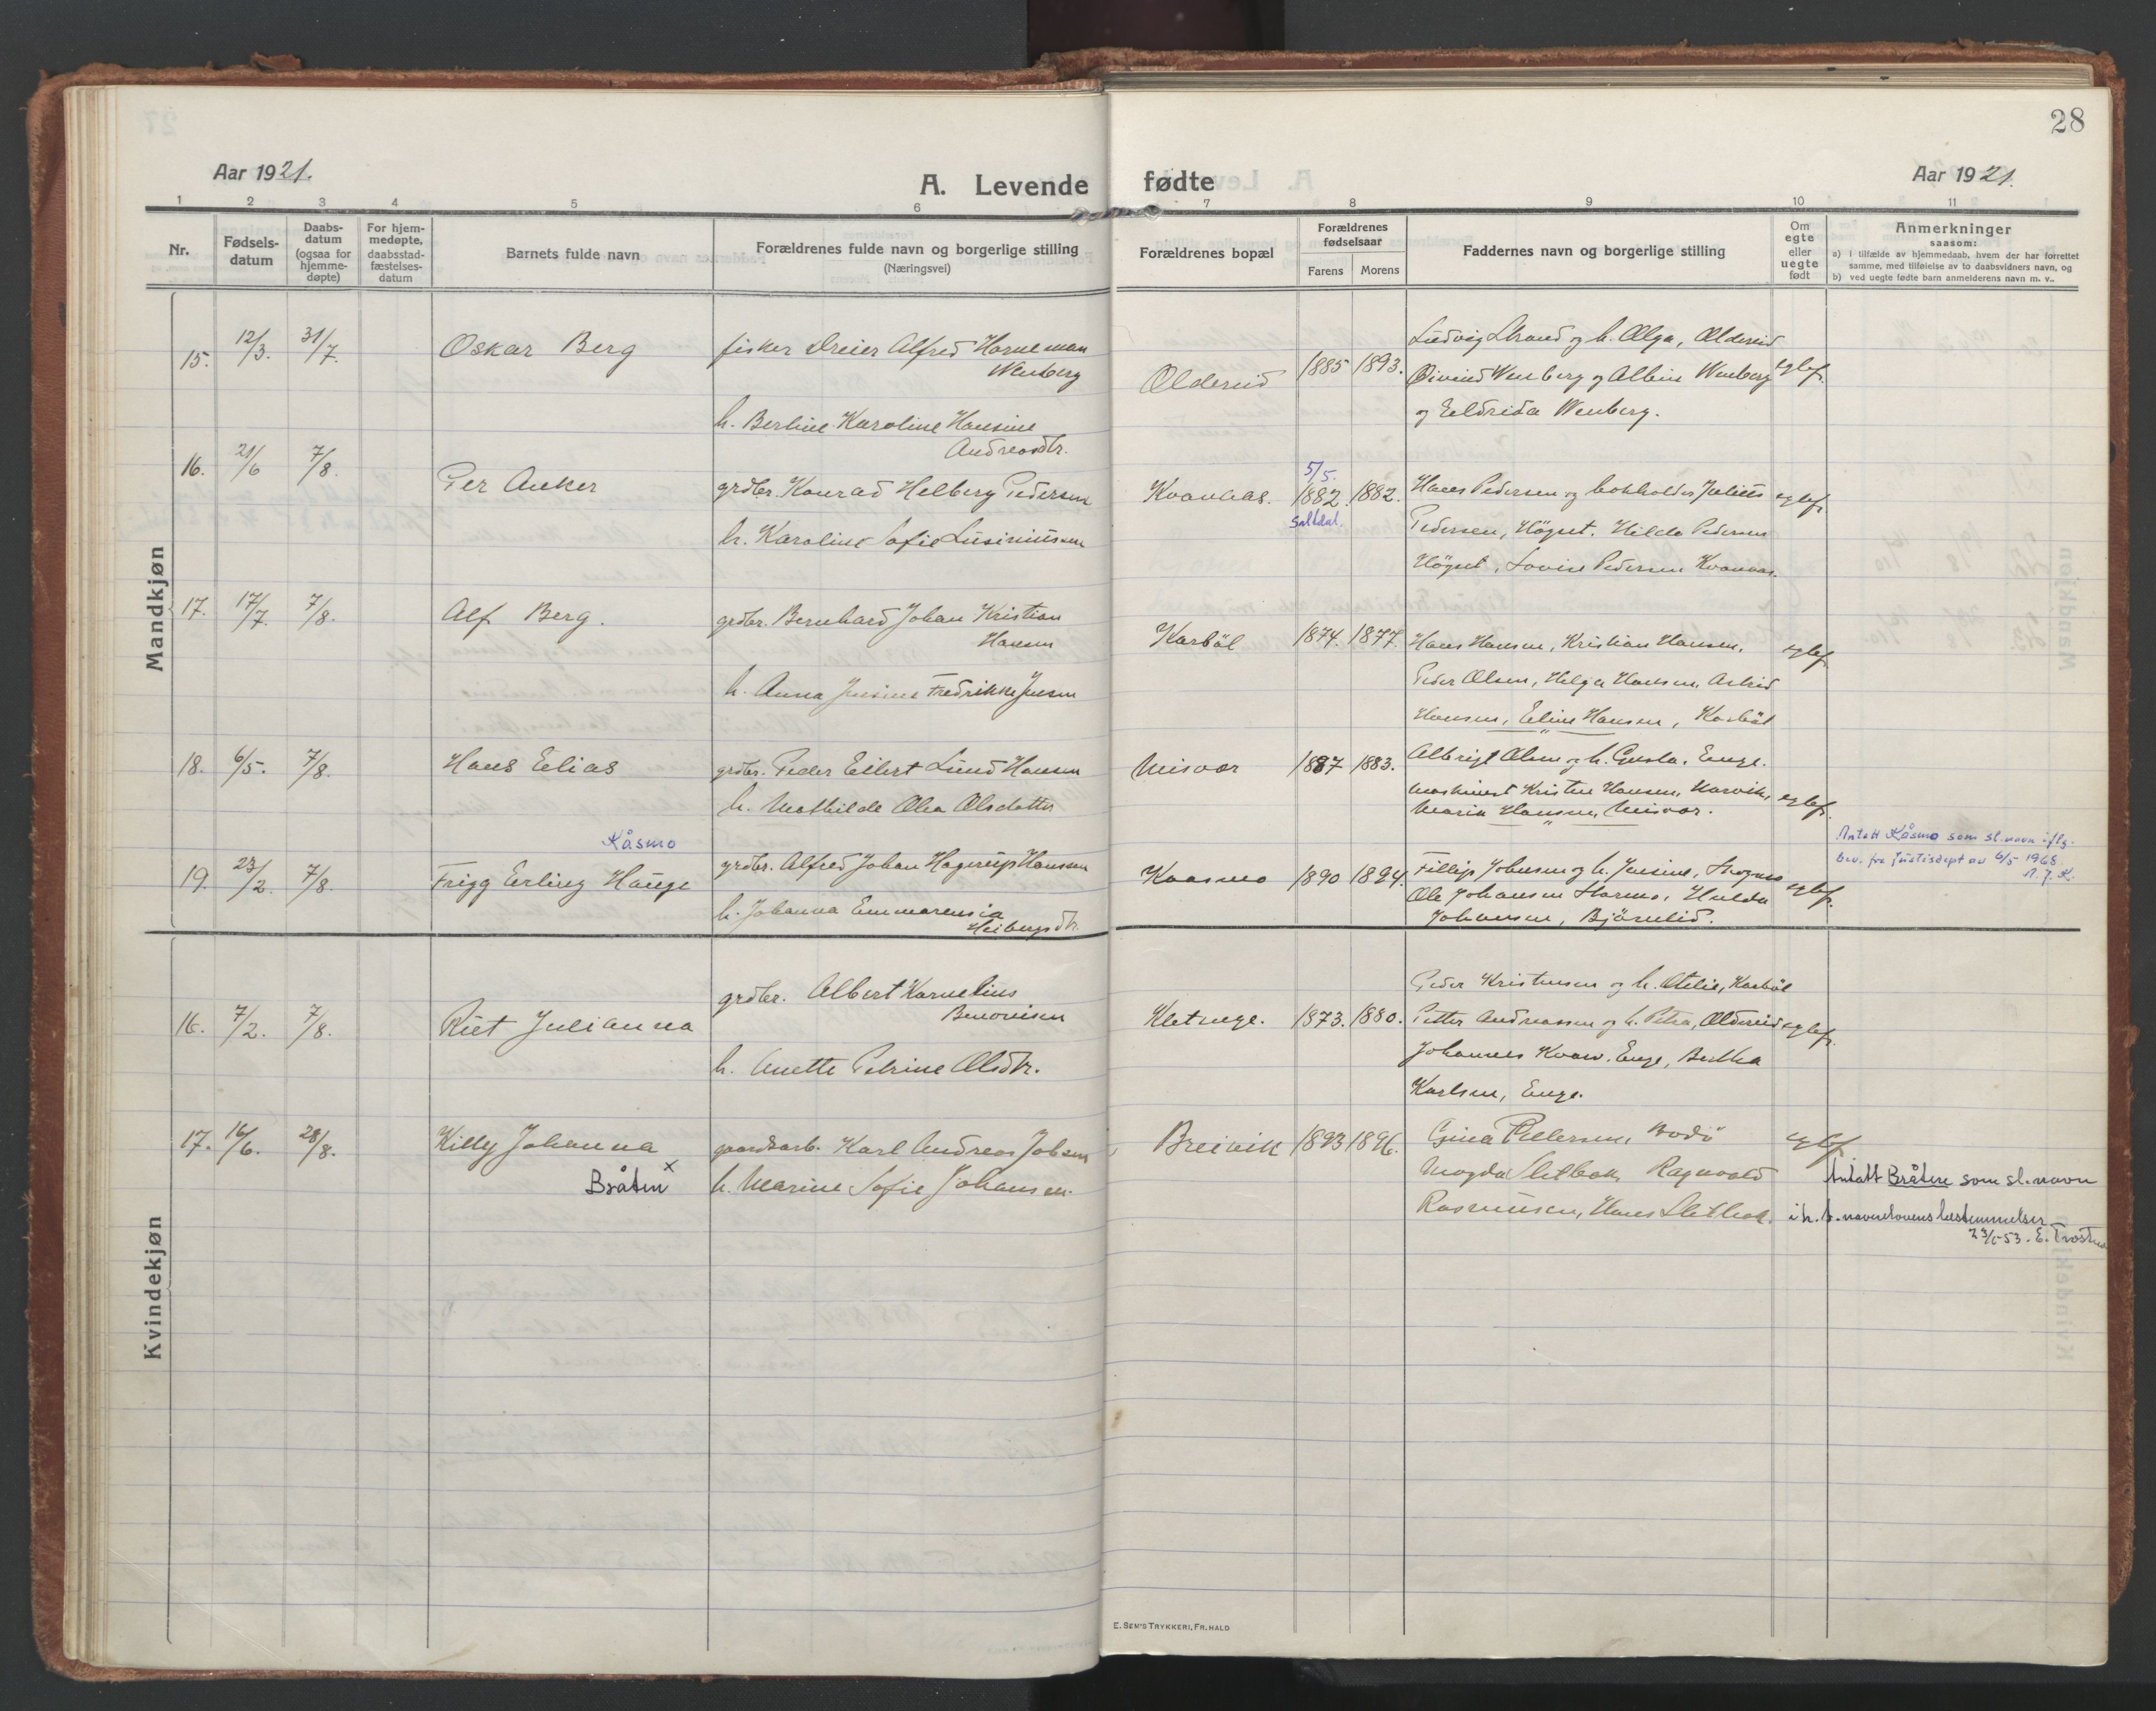 28
Aar 1921.
A. Levende fødte
Aar 1921.
1 2 3 4 5 6 7 8 9 10 11
Nr.
Fødsels-
datum
Daabs-
datum
(ogsaa for
hjemme-
døpte)
For hjem-
medøpte,
daabsstad-
fæstelses-
datum
Barnets fulde navn
Forældrenes fulde navn og borgerlige stilling
(Næringsvei)
Forældrenes bopæl
Forældrenes
fødselsaar
Farens Morens
Faddernes navn og borgerlige stilling
Om
egte
eller
uegte
født
Anmerkninger
saasom:
a) i tilfælde av hjemmedaab, hvem der har forrettet
samme, med tilføielse av to daabsvidners navn, og
b) ved uegte fødte barn anmelderens navn m. v..
Mandkjøn
15. 12/3. 31/7. Oskar Berg
fisker Dreier Alfred Horneman
Wenberg
h. Berline Karoline Hansine
Andreasdtr.
Oldereid 1885 1893.
Ludvig Strand og h. Olga, Oldereid
Øivind Wenberg og Albin Wenberg
og Eeldrida Wenberg.
egtef.
16. 21/6 7/8. Per Anker
grdbr. Konrad Helberg Pedersen
h. Karoline Sofie Lusiniussen
Kvannaas. 5/5. 1882. 1882.
Saltdal.
Hans Pedersen og bokholder Julius
Pedersen, Högset. Hilda Pedersen
Högset, Lovise Pedersen Kvannas.
egtef.
17. 17/7. 7/8. Alf Berg.
grdbr. Bernhard Johan Kristian
Hansen
h. Anna Jensine Fredrikke Jensen
Karböl 1874. 1877.
Hans Hansen, Kristian Hansen,
Peder Olsen, Helga Hansen, Astrid
Hansen, Eline Hansen, Karböl
egtef.
18. 6/5. 7/8. Hans Elias
grdbr. Peder Eilert Lund Hansen
h. Mathilde Olea Olsdatter
Misvær 1887 1883.
Albrigt Olsen og h. Gusta, Enge.
maskinist Kristen Hansen, Narvik,
Marie Hansen, Misvær.
egtef.
19. 23/2. 7/8. Frigg Erling Hauge
Kåsmo
grdbr. Alfred Johan Hagerup Hanssen
h. Johanna Emmarensia
Heibergsdtr.
Kaasmo 1890 1894.
Fillip Johnsen og h. Jensine,
Ole Johansen Stormo, Hulda
Johansen, Björnlid.
egtef.
Antatt Kåsmo som sl.navn iflg.
bev. fra Justisdept av 6/5 1968.
Kvindekjøn
16. 7/2. 7/8. Riet Julianna
grdbr. Albert Kornelius
Benonisen
h. Anette Petrine Olsdtr.
Kletenge. 1873. 1880.
Peder Kristensen og h. Otelie, Karböl
Petter Andreassen og h. Petra, Oldereid
Johannes Kvær. Enge, Bertha
Karlsen, Enge.
egtef.
17. 16/6. 28/8. Killy Johanna
Bråten x
gaardsarb. Karl Andreas Jobsen
h. Marine Sofie Johansen.
Breivik 1893 1896.
Gina Pettersen, Bodö
Magda Sletbak, Ragnvald
Rasmussen, Hans Sletbak.
egtef.
Antatt Bråten som sl.navn
i h. t. navnelovens bestemmelser
23/5-53. E. Trostmo
E. SEM'S TRYKKERI, FR.HALD